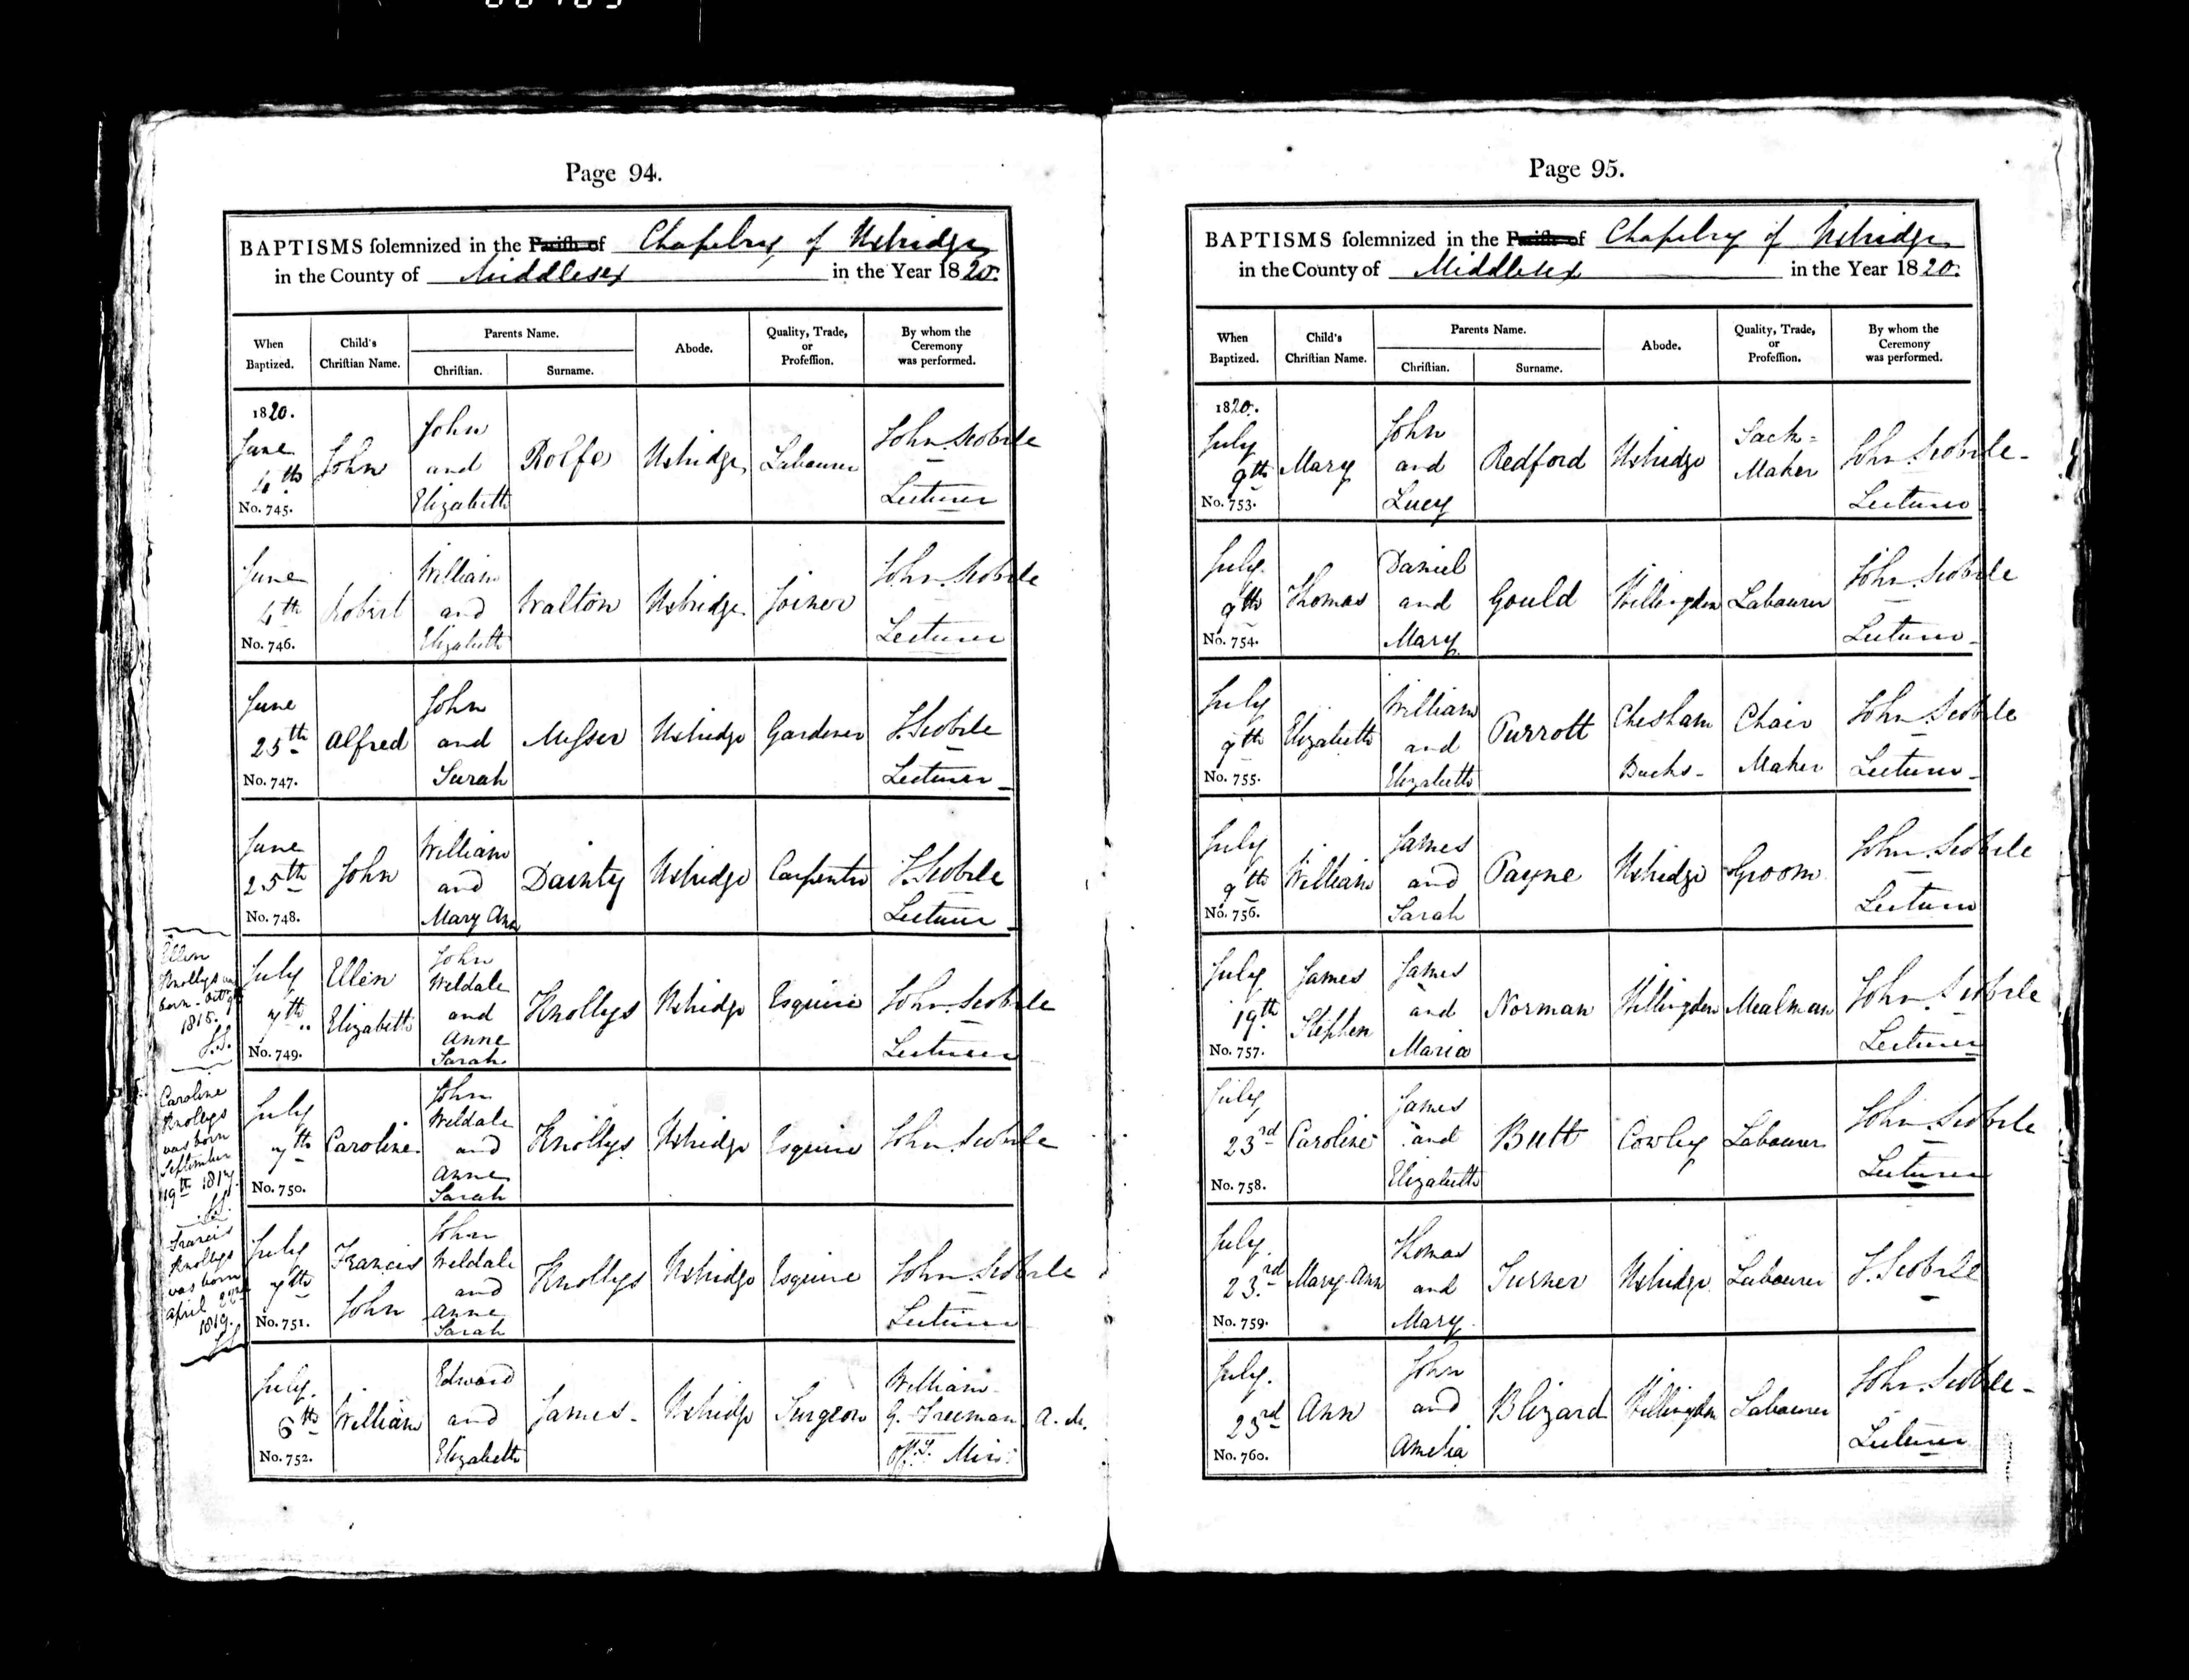 Page 94.
BAPTISMS solemnized in the Parish of Chapelry of Uxbridge
in the County of Middlesex in the Year 1820.
When Baptized. Child's Christian Name. Parents Name. Christian. Surname. Abode. Quality, Trade, or Profession. By whom the Ceremony was performed.
1820. June 4th No. 745. John John and Elizabeth Rolfe Uxbridge Labourer John Scobele Lecturer
June 4th No. 746. Robert William and Elizabeth Walton Uxbridge Joiner John Scobele Lecturer
June 25th No. 747. Alfred John and Sarah Messer Uxbridge Gardener J. Scobele Lecturer
June 25th No. 748. John William and Mary Ann Dainty Uxbridge Carpenter J. Scobele Lecturer
Ellen
Knollys was
born Octr 9th
1815.
J.S.
July 7th No. 749. Ellen Elizabeth John Weldale and Anne Sarah Knollys Uxbridge Esquire John Scobele Lecturer
Caroline
Knollys
was born
September
19th 1817.
J.S.
July 7th No. 750. Caroline John Weldale and Anne Sarah Knollys Uxbridge Esquire John Scobele
Francis
Knollys
was born
April 22nd
1819.
J.S.
July 7th No. 751. Francis John John Weldale and Anne Sarah Knollys Uxbridge Esquire John Scobele Lecturer
July 6th No. 752. William Edward and Elizabeth James Uxbridge Surgeon William G. Freeman A.M. Offg. Minr
Page 95.
BAPTISMS solemnized in the Parish of Chapelry of Uxbridge
in the County of Middlesex in the Year 1820.
When Baptized. Child's Christian Name. Parents Name. Christian. Surname. Abode. Quality, Trade, or Profession. By whom the Ceremony was performed.
1820. July 9th No. 753. Mary John and Lucy Redford Uxbridge Sack= Maker John Scobele Lecturer
July 9th No. 754. Thomas Daniel and Mary Gould Hillingdon Labourer John Scobele Lecturer
July 9th No. 755. Elizabeth William and Elizabeth Purrott Chesham Bucks Chair Maker John Scobele Lecturer
July 9th No. 756. William James and Sarah Payne Uxbridge Groom John Scobele Lecturer
July 19th No. 757. James Stephen James and Maria Norman Hillingdon Mealman John Scobele Lecturer
July 23rd No. 758. Caroline James and Elizabeth Butt Cowley Labourer John Scobele Lecturer
July 23rd No. 759. Mary Ann Thomas and Mary Turner Uxbridge Labourer J. Scobele
July 23rd No. 760. Ann John and Amelia Blizard Hillingdon Labourer John Scobele Lecturer